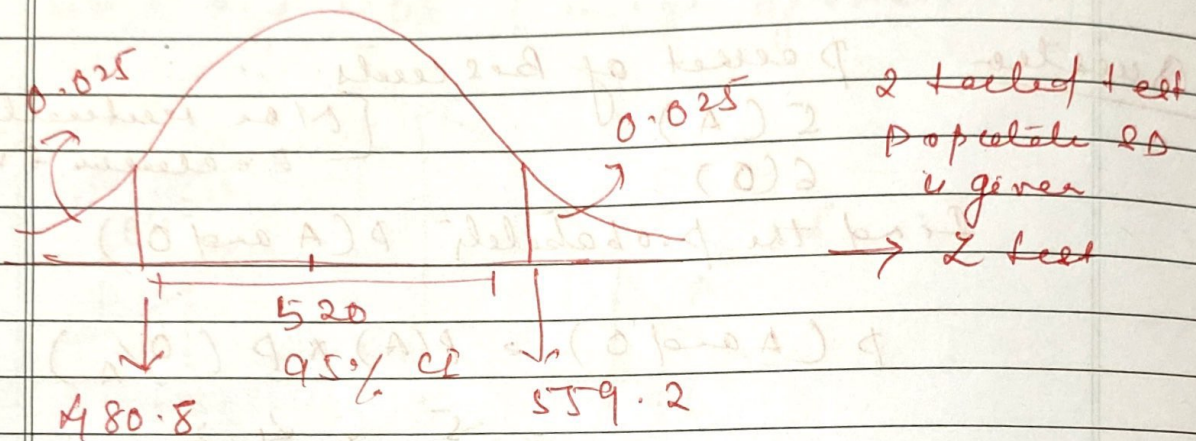 0.025
0.025
2 tailed test
Popolate SD
is given
→ Z test
520
95% CI
480.8
559.2